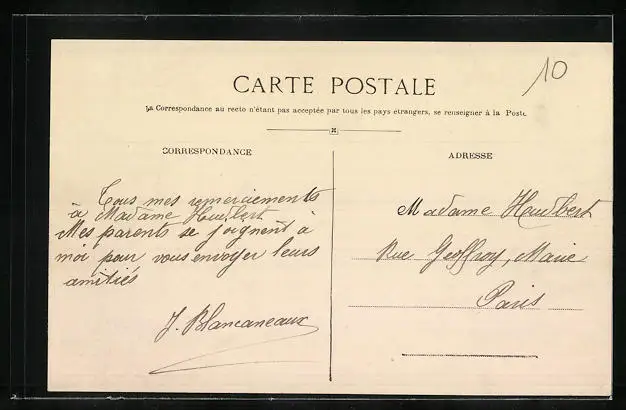 10
CARTE POSTALE
La Correspondance au recto n'étant pas acceptée par tous les pays étrangers, se renseigner à la Poste
CORRESPONDANCE
ADRESSE
Tous mes remerciements
à Madame Heulbert
Mes parents se joignent à
moi pour vous envoyer leurs
amitiés
J. Blancaneaux
Madame Heulbert
Rue Geoffroy, Marie
Paris